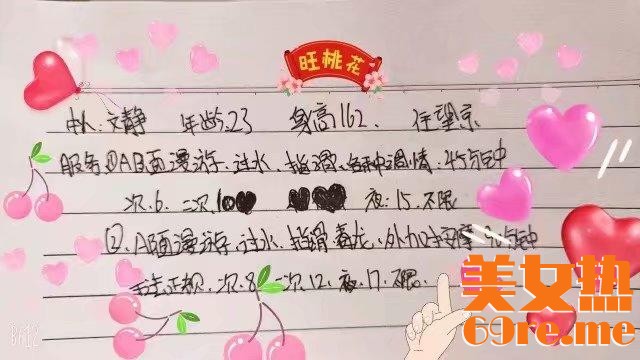 旺桃花
本人:文静 年龄:23 身高162. 住望京
服务①AB面漫游.过水.指滑.各种调情.45分钟
次.6. 二次.10 夜:15.不限
②.AB面漫游.过水.指滑.毒龙.外加 分钟
手法正规.次.8 二次.12.夜.17.不限.
美女热
69re.me
B612